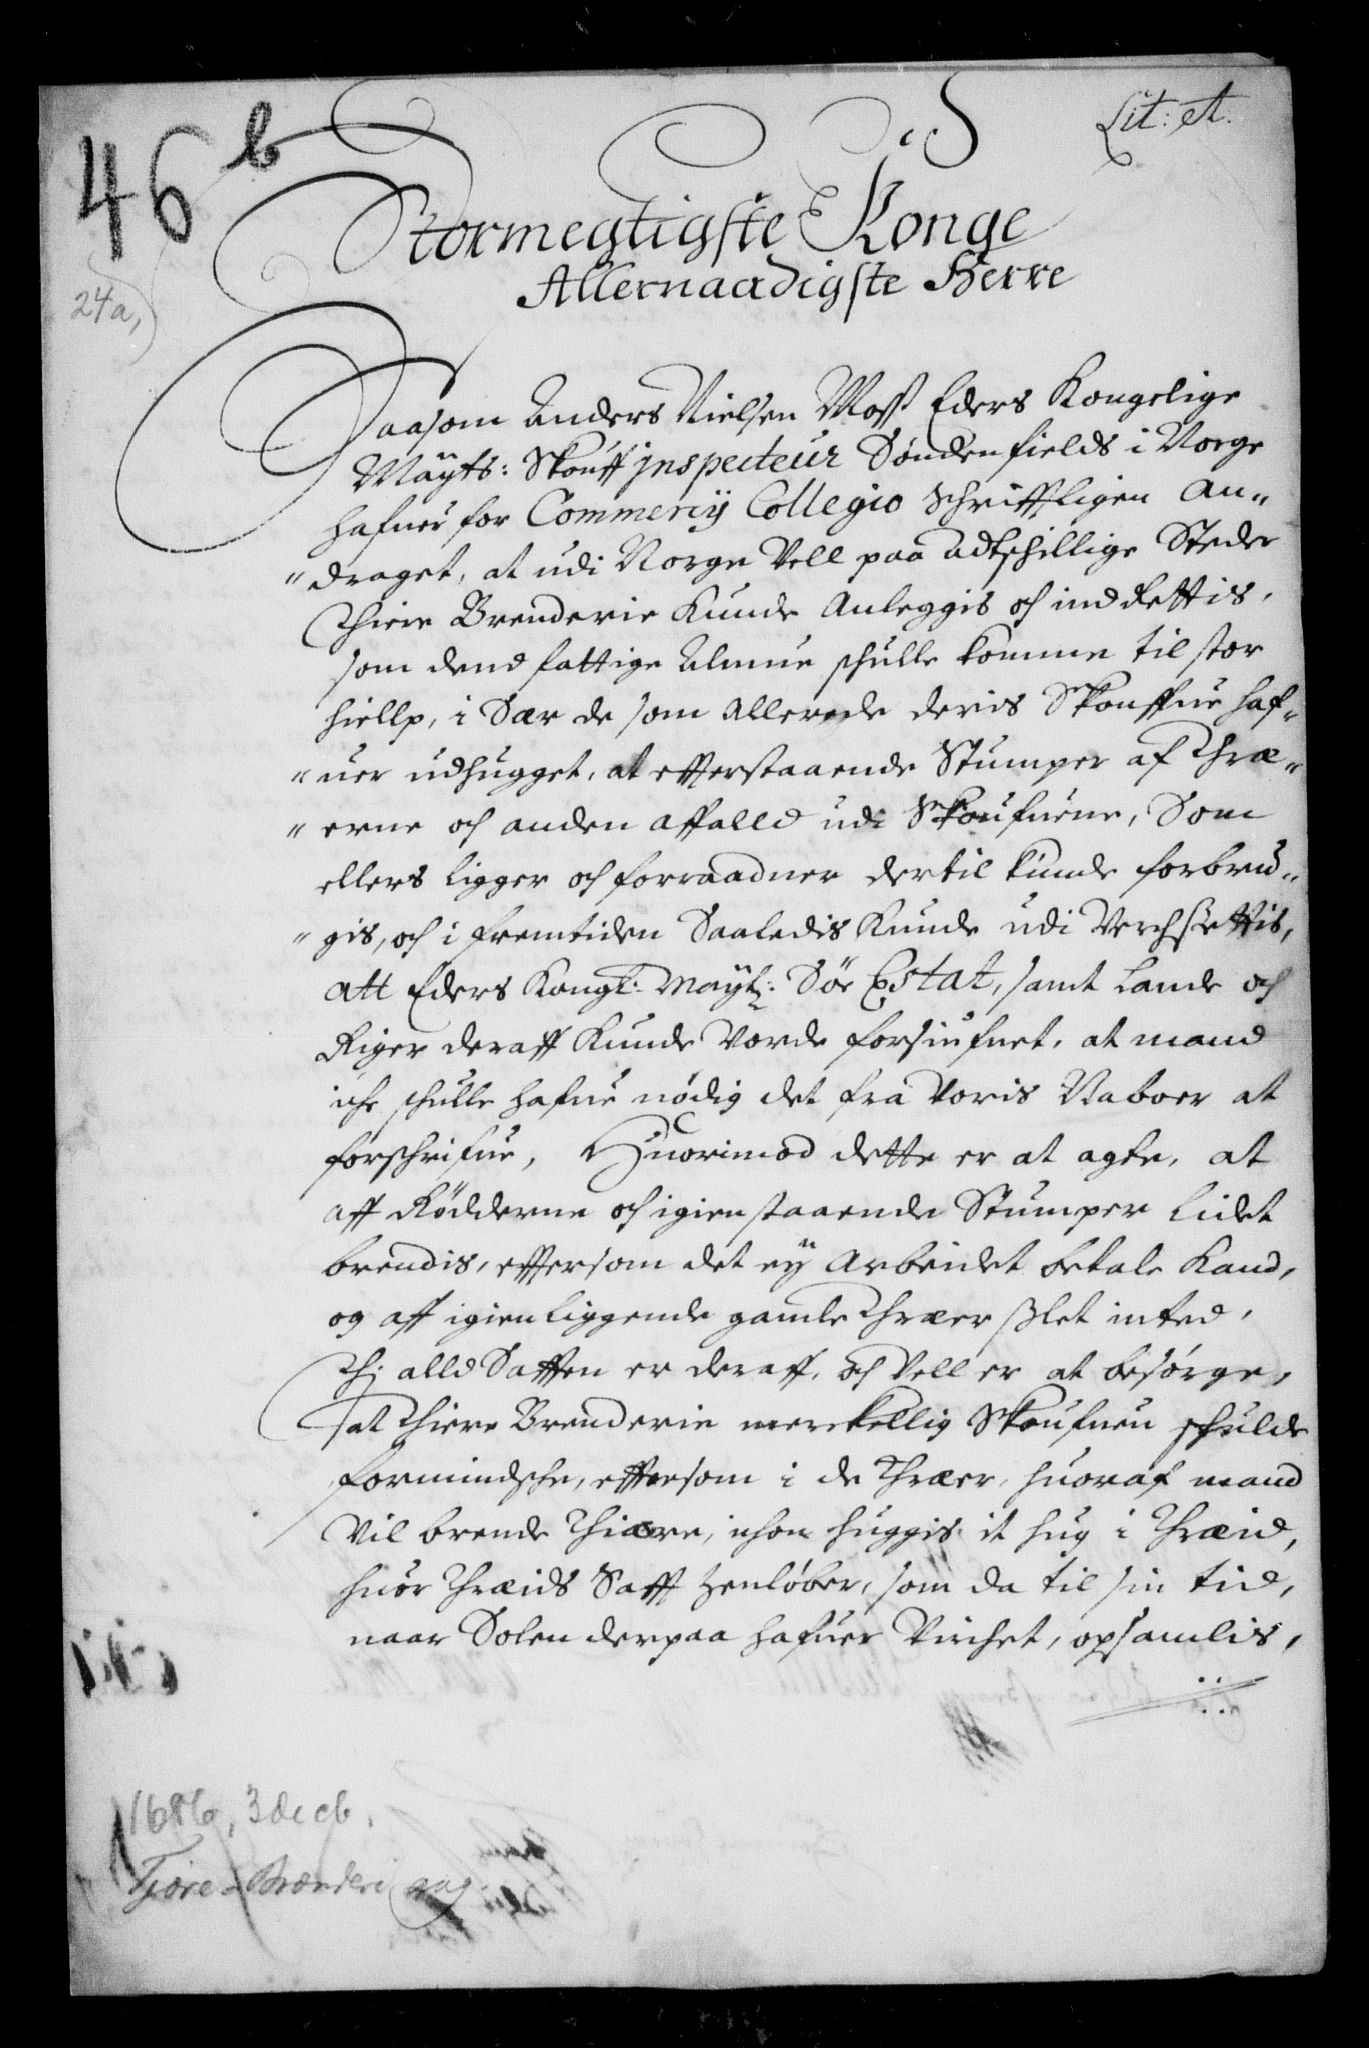 46 b
Lit: A.
24a,
Stormegtigste Konge
Allernaadigste Herre
Saasom Anders Nielsen Moss Eders Kongelige
Mayts: Skouff jnspecteur Søndenfields i Norge
hafuer for Commercij Collegio schrifftligen An„
„draget, at udi Norge Vell paa adschillige Steder
Thiere Brenderie Kunde Anleggis och indRettis,
som dend fattige Almue schulle komme til stor
hiellp, i Sær de som Allerede deris Skouffue haf„
„uer udhugget, at effterstaaende Stumper af Thræ„
„erne och anden affalld udi Skoufuene, Som
ellers ligger och forraadner dertil kunde forbru„
„gis, och i fremtiden Saaledis Kunde udi Verchsettis,
att Eders Kongl: Mayts: Søe Estat, samt Lande och
Riger deraff Kunde Vorde forsiufnet, at mand
iche schulle hafue nødig det fra Voris Naboer at
forschrifue, Huorimod dette er at agte, at
aff Rödderne och igienstaaende Stumper Lidet
brendis, effersom det ey Arbeidet betale Kand,
og aff igienliggende gamle Thræer slet inted,
Thj alld Safften er deraff, och Vell er at besørge,
at Thiere Brenderie merckellig Skoufuen schulde
formindsche, effersom i de Thræer, huoraf mand
Vil brende Thiære, ichon huggis it hug i Thræid,
huor Thræids Safft henløber, som da til sin tid,
naar Solen derpaa hafuer Virchet, opsamlis,
1686, 3 decb.
Tjære-Brænderi ang.